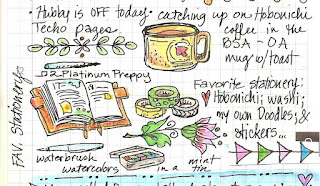 • Hubby is OFF today • catching up on Hobonichi
Techo pages
coffee in the
BSA - OA
mug w/toast
.02 Platinum Preppy
Favorite stationery:
Hobonichi; washi;
my own Doodles; &
Stickers...
FAV. Stationery
waterbrush
watercolors
in a mint tin